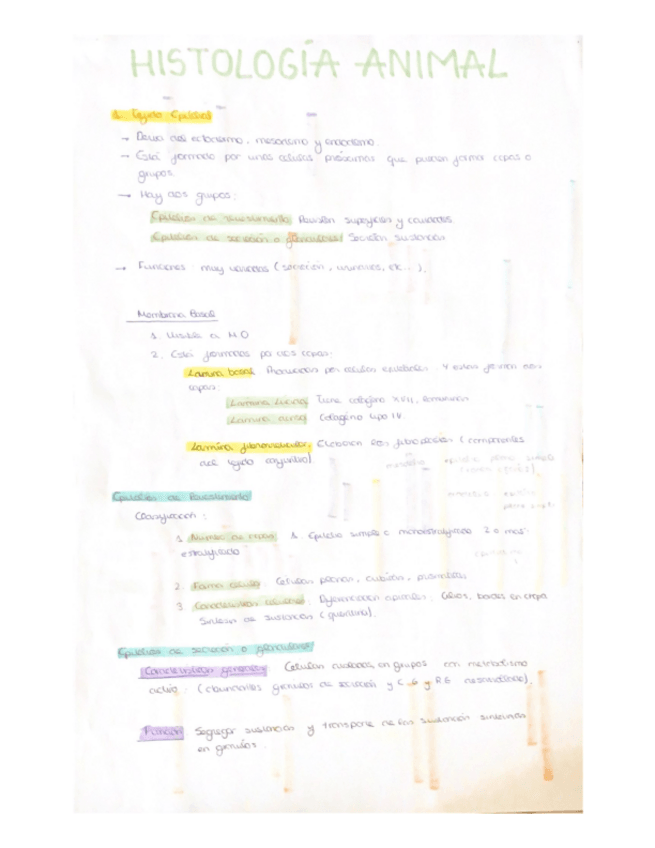 HISTOLOGÍA ANIMAL
1. Tejido Epitelial
→ Deriva del ectodermo, mesodermo y endodermo.
→ Está formado por unas células próximas que pueden formar capas o
grupos.
→ Hay dos grupos:
Epitelios de revestimiento: Revisten superficies y cavidades.
Epitelios de secreción o glandulares: Secretan sustancias
→ Funciones muy variadas (secreción, etc...).
Membrana Basal
1. Visible a M.O
2. Está formada por dos capas:
Lámina basal: Producida por células epiteliales. Y estas forman dos
capas:
Lámina lúcida: Tiene colágeno XVII, lamininas
Lámina densa: Colágeno tipo IV.
Lámina fibrorreticular: Elaboran los fibroblastos (componentes
del tejido conjuntivo)
epitelio plano simple
Epitelios de Revestimiento
Clasificación:
1. Número de capas: 1. Epitelio simple o monoestratificado 2 o más:
estratificado
2. Forma células: Células planas, cúbicas, prismáticas
3. Características celulares: Diferenciación apicales: Cilios, bordes en cepillo
Síntesis de sustancias (queratina).
Epitelios de secreción o glandulares
Características generales: Células cúbicas, en grupos con metabolismo
activo: (abundantes gránulos de secreción y C.G y R.E desarrollado).
Función: Segregar sustancias y transporte de las sustancias sintetizadas
en gránulos.